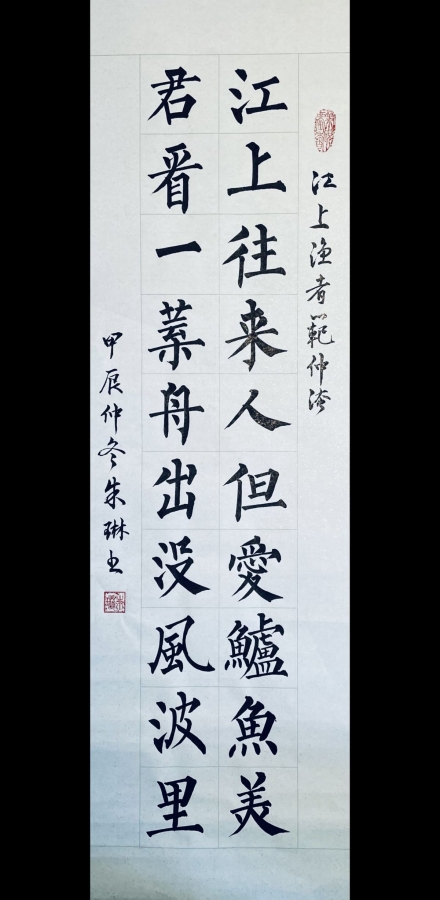 江上渔者 範仲淹
江上往来人但愛鱸魚美
君看一葉舟出没風波里
甲辰仲冬朱琳书